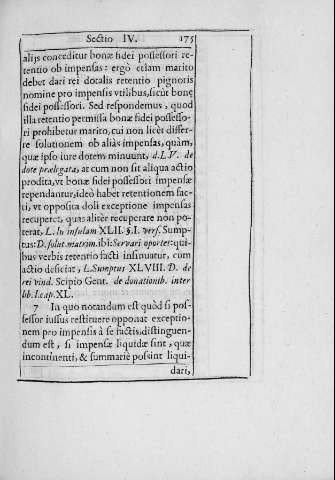 Sectio IV. 175
alijs conceditur bonæ fidei possessori re-
tentio ob impensas: ergò etiam marito
debet dari rei dotalis retentio pignoris
nomine pro impensis vtilibus, sicùt bonę
fidei possessori. Sed respondemus, quod
illa retentio permissa bonæ fidei possesso-
ri prohibetur marito, cui non licèt differ-
re solutionem ob aliàs impensas, quàm,
quæ ipso iure dotem minuunt, d.L.V. de
dote prælegata, at cum non sit aliqua actio
prodita, vt bonæ fidei possessori impensæ
rependantur, ideò habet retentionem fac-
ti, vt opposita doli exceptione impensas
recuperet, quas alitèr recuperare non po-
terat, L. In insulam XLII. §.I. vers. Sump-
tus: D. solut. matrim. ibi: Servari oportet: qui-
bus verbis retentio facti insinuatur, cum
actio deficiat, L. Sumptus XLVIII. D. de
rei vind. Scipio Gent. de donationib. inter
lib. I. cap. XL.
7 In quo notandum est quòd si pos-
sessor iussus restituere opponat exceptio-
nem pro impensis à se factis, distinguen-
dum est, si impensæ liquidæ sint, quæ
incontinenti, & summariè possint liqui-
dari,